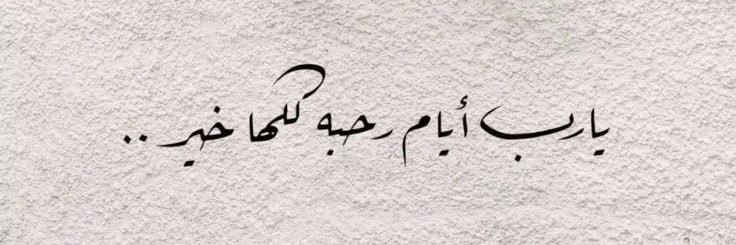 يارب أيام رحبه كلها خير ..